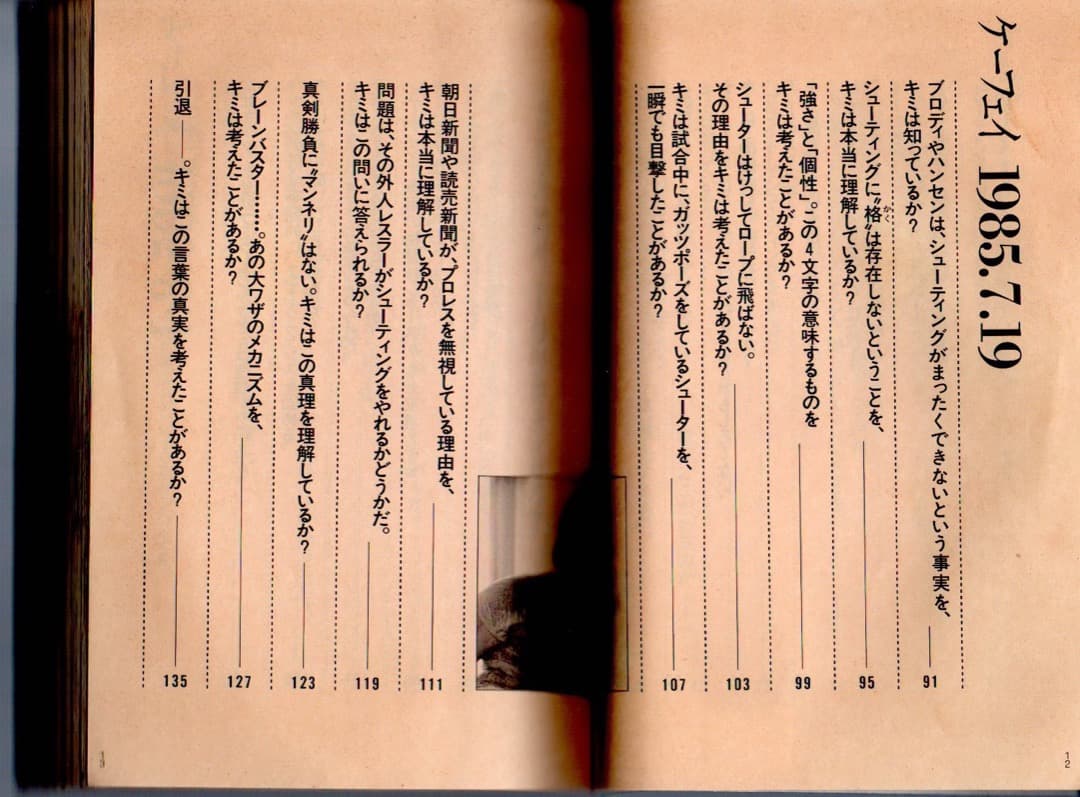 ケーフェイ 1985.7.19
ブロディやハンセンは、シューティングがまったくできないという事実を、
キミは知っているか? 91
シューティングに〝格〟は存在しないということを、
かく
キミは本当に理解しているか? 95
「強さ」と「個性」。この4文字の意味するものを
キミは考えたことがあるか? 99
シューターはけっしてロープに飛ばない。
その理由をキミは考えたことがあるか? 103
キミは試合中に、ガッツポーズをしているシューターを、
一瞬でも目撃したことがあるか? 107
朝日新聞や読売新聞が、プロレスを無視している理由を、
キミは本当に理解しているか? 111
問題は、その外人レスラーがシューティングをやれるかどうかだ。
キミはこの問いに答えられるか? 119
真剣勝負に〝マンネリ〟はない。キミはこの真理を理解しているか? 123
ブレーンバスター………。あの大ワザのメカニズムを、
キミは考えたことがあるか? 127
引退――。キミはこの言葉の真実を考えたことがあるか? 135
12
13